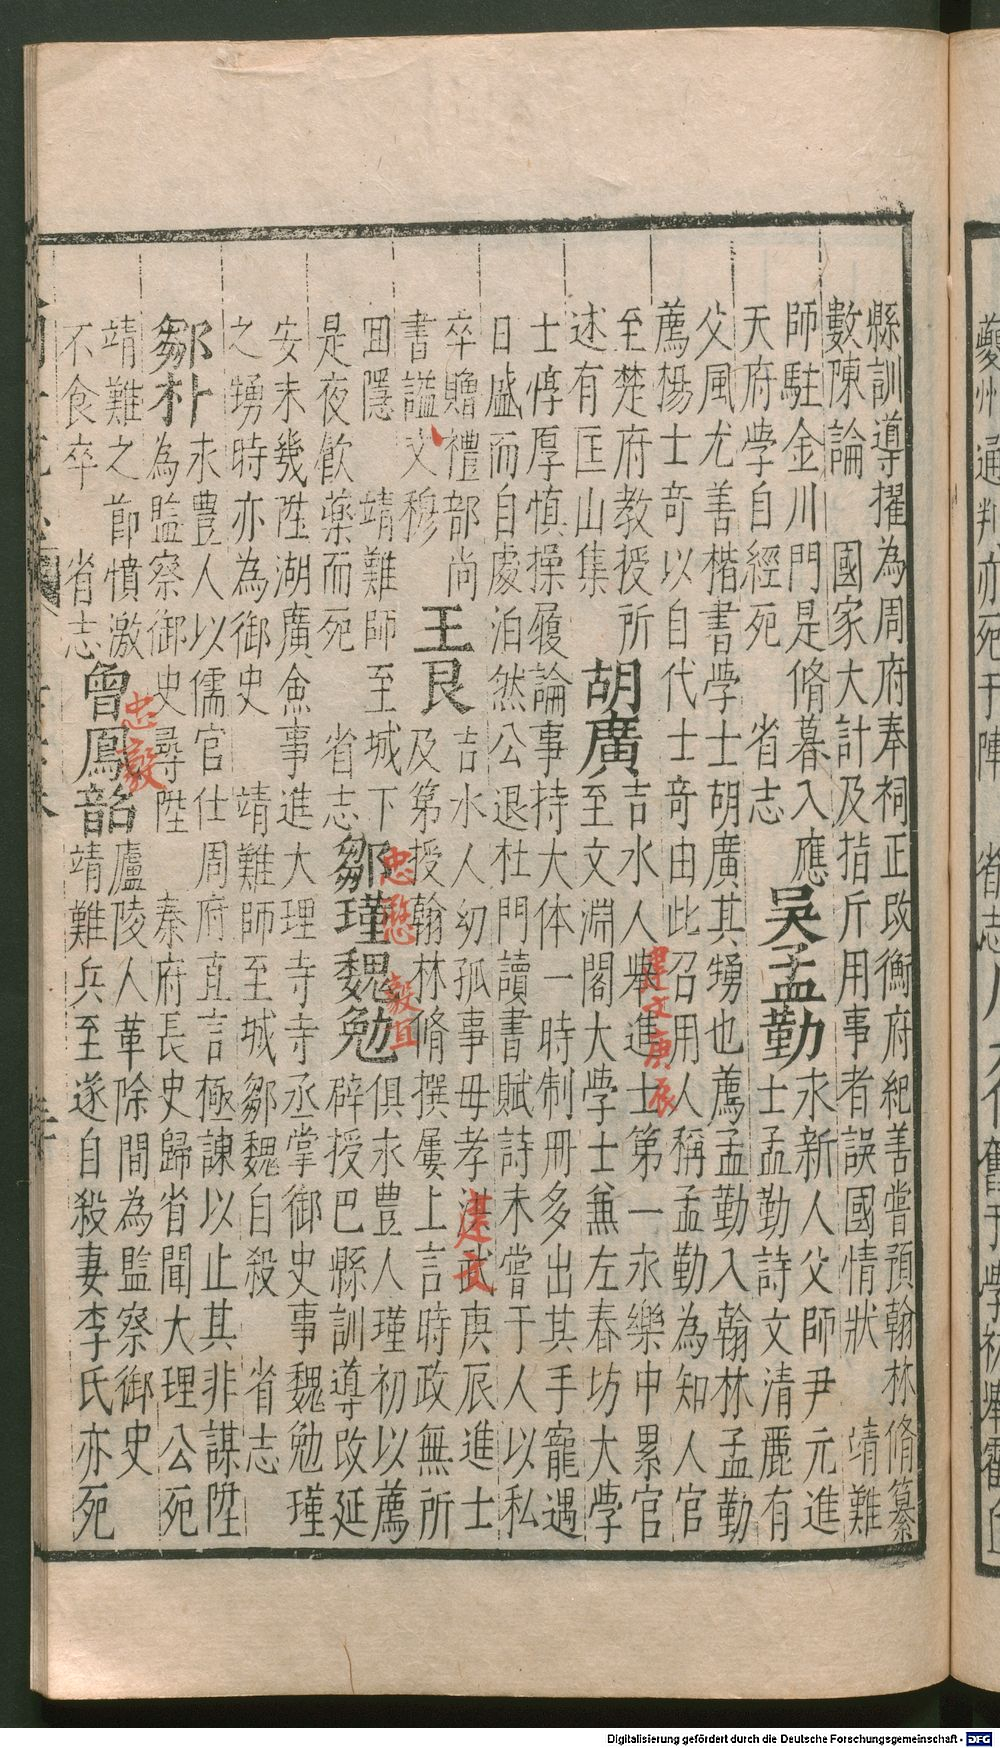 縣訓導擢為周府奉祠正改衡府紀善嘗預翰林脩纂
數陳論 國家大計及指斥用事者誤國情狀 靖難
師駐金川門是脩暮入應
天府學自經死 省志
吳孟勤
永新人父師尹元進
士孟勤詩文清麗有
父風尤善楷書學士胡廣其甥也薦孟勤入翰林孟勤
薦楊士奇以自代士奇由此召用人稱孟勤為知人官
至楚府教授所
述有匡山集
胡廣
吉水人舉進士第一永樂中累官
建文庚辰
至文淵閣大學士兼左春坊大學
士惇厚慎操履論事持大体一時制冊多出其手寵遇
日盛而自處泊然公退杜門讀書賦詩未嘗于人以私
卒贈禮部尚
書謚文穆
王艮
吉水人幼孤事母孝洪武庚辰進士
建文
及第授翰林脩撰屢上言時政無所
囬隱 靖難師至城下
是夜飲藥而死 省志
鄒瑾魏勉
忠愍 毅直
俱永豐人瑾初以薦
辟授巴縣訓導改延
安未幾陞湖廣僉事進大理寺寺丞掌御史事魏勉瑾
之甥時亦為御史 靖難師至城鄒魏自殺 省志
鄒朴
永豐人以儒官仕周府直言極諫以止其非謀陞
為監察御史尋陞 秦府長史歸省聞大理公死
靖難之節憤激
不食卒 省志
曾鳳韶
忠毅
廬陵人革除間為監察御史
靖難兵至遂自殺妻李氏亦死
Digitalisierung gefördert durch die Deutsche Forschungsgemeinschaft - DFG